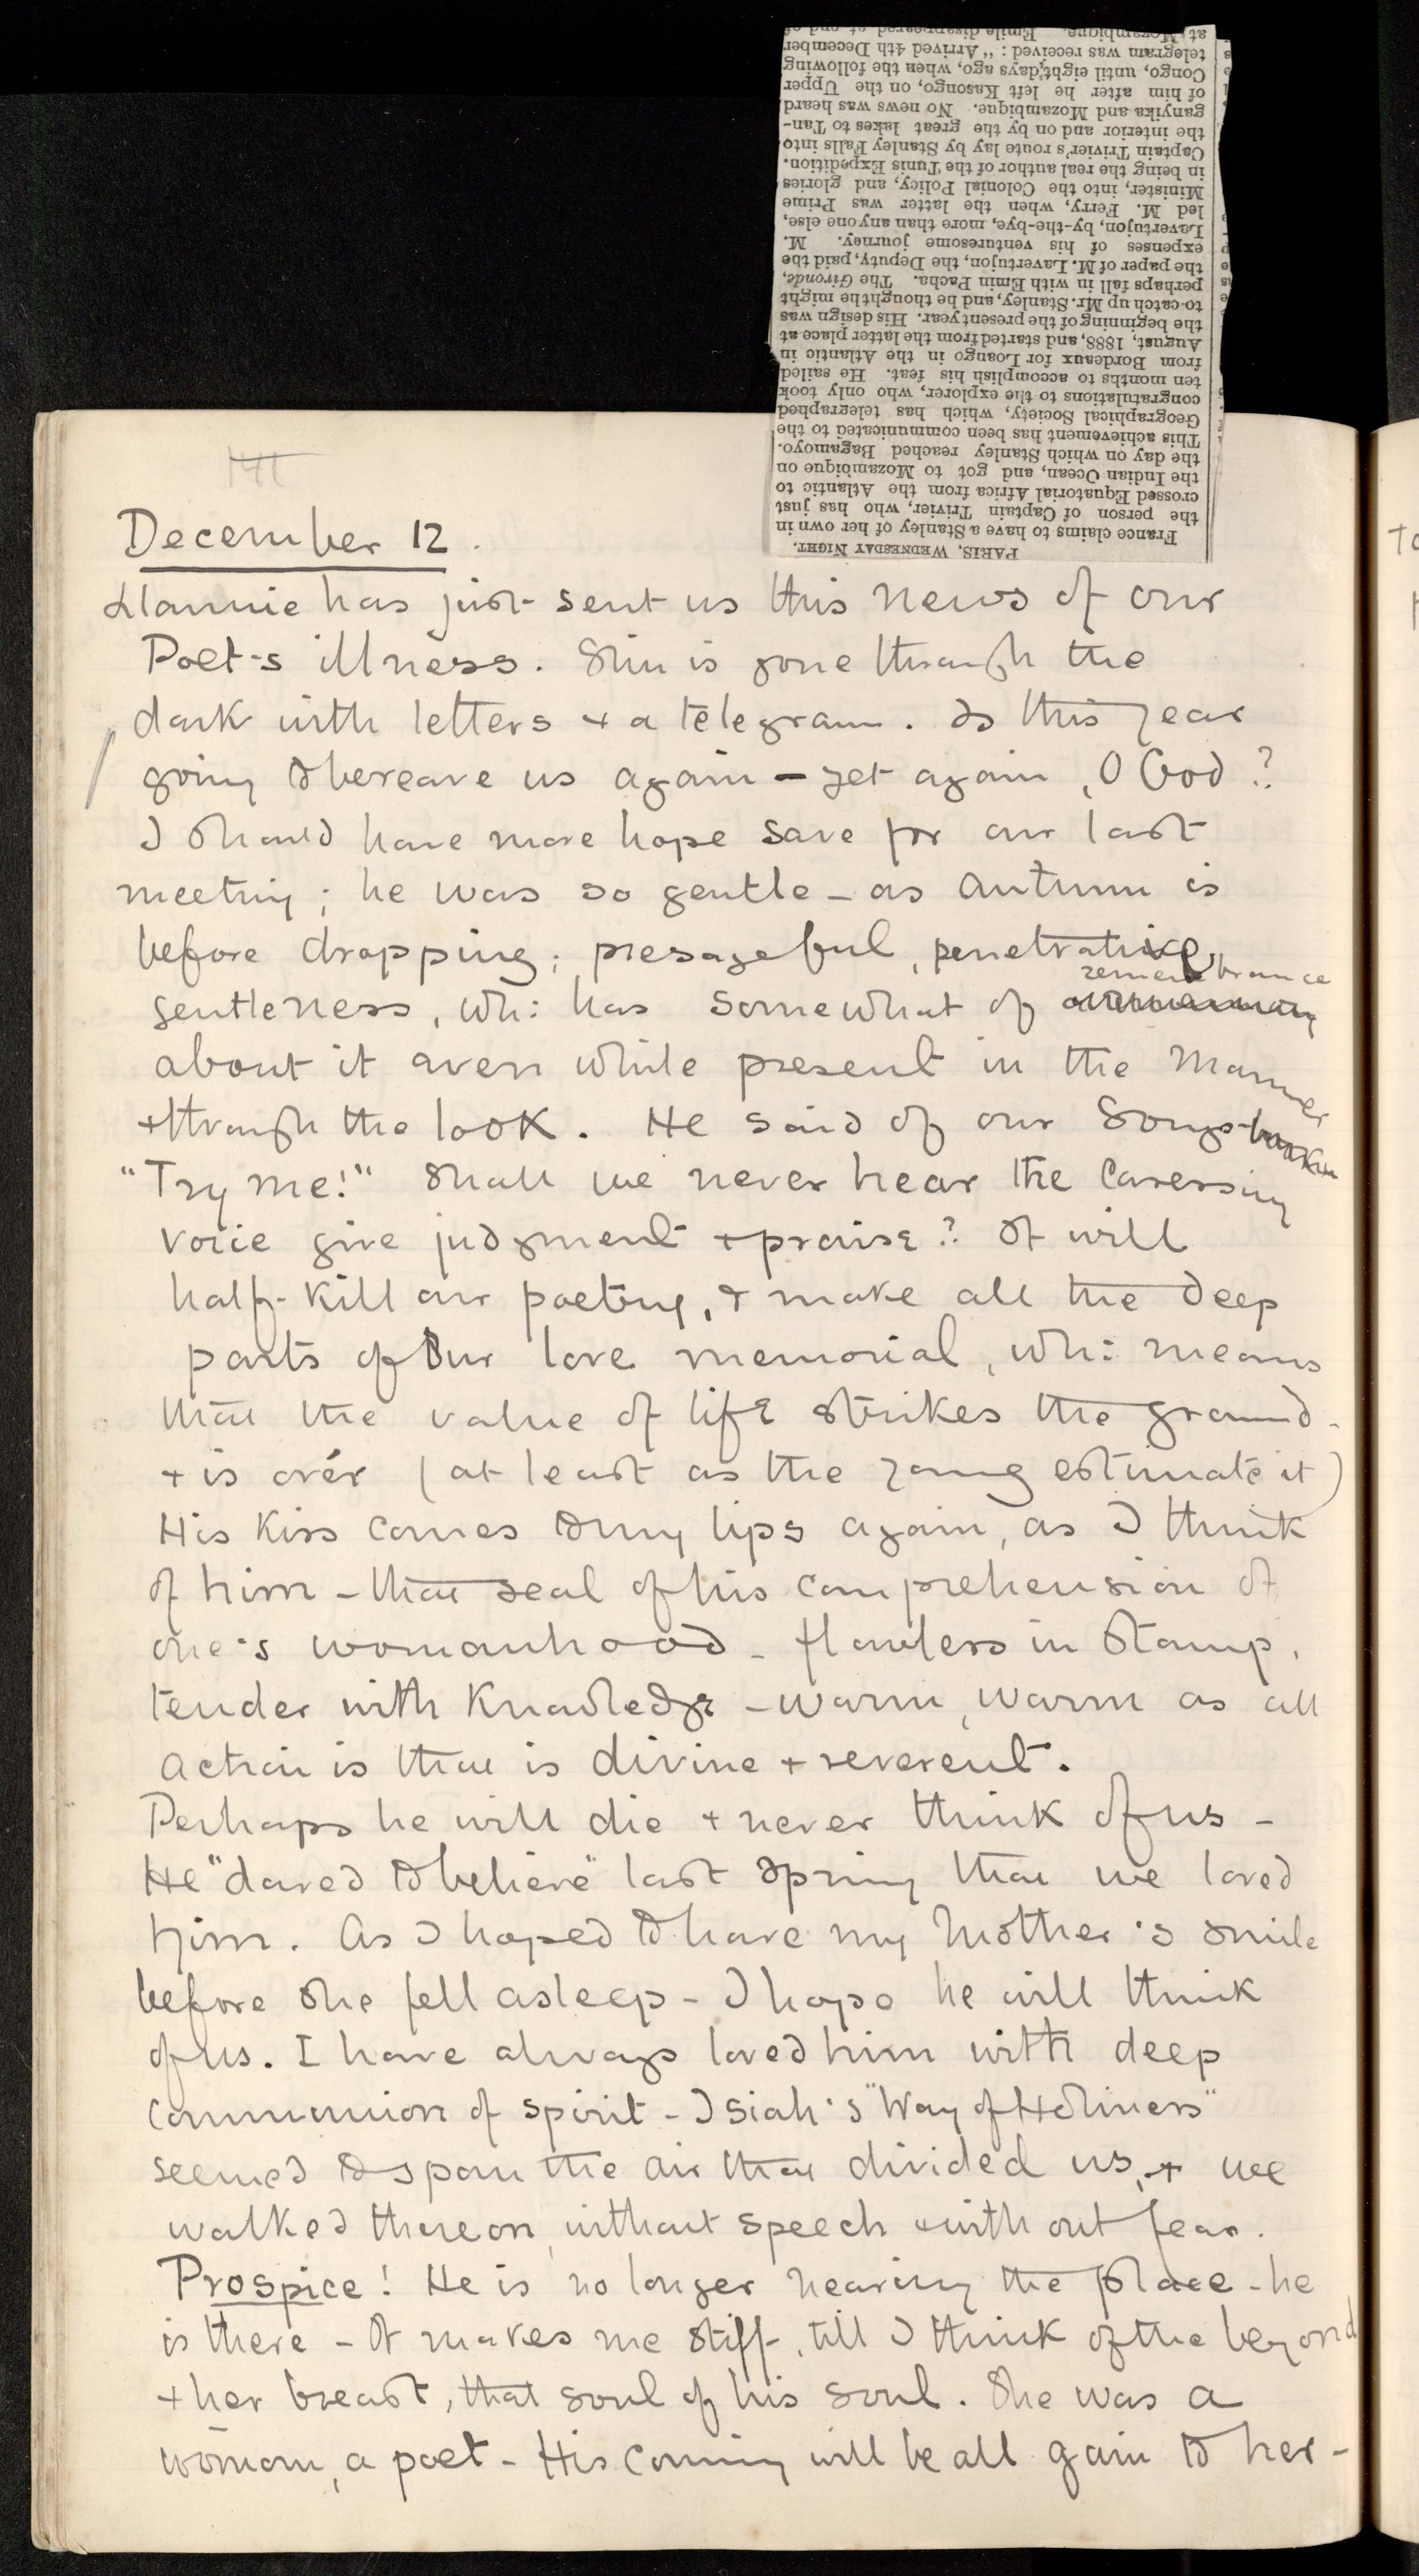 PARIS, WEDNESDAY NIGHT.
France claims to have a Stanley of her own in
the person of Captain Trivier, who has just
crossed Equatorial Africa from the Atlantic to
the Indian Ocean, and got to Mozambique on
the day on which Stanley reached Bagamoyo.
This achievement has been communicated to the
Geographical Society, which has telegraphed
congratulations to the explorer, who only took
ten months to accomplish his feat. He sailed
from Bordeaux for Loango in the Atlantic in
August, 1888, and started from the latter place at
the beginning of the present year. His design was
to catch up Mr. Stanley, and he thought he might
perhaps fall in with Emin Pacha. The Gironde,
the paper of M. Lavertujon, the Deputy, paid the
expenses of his venturesome journey. M.
Lavertujon, by-the-bye, more than anyone else,
led M. Ferry, when the latter was Prime
Minister, into the Colonial Policy, and glories
in being the real author of the Tunis Expedition.
Captain Trivier's route lay by Stanley Falls into
the interior and on by the great lakes to Tan-
ganyika and Mozambique. No news was heard
of him after he left Kasongo, on the Upper
Congo, until eight days ago, when the following
telegram was received: "Arrived 4th December
at Mozambique. Emile disappeared at end of
December 12.
has just sent us this news of our
Poet's illness. Sim is gone through the
dark with letters + a telegram. Is this year
going to bereave us again – yet again, O God?
I should have more hope save for our last
meeting; he was so gentle – as autumn is
before dropping; presageful, penetrative
gentleness, whi: has somewhat of remembrance
about it even while present in the manner
+ through the look. He said of our Songs
"Try me!" Shall we never hear the caressing
voice give judgment + praise? It will
half-kill our poetry, & make all the deep
parts of our love memorial, whi: means
that the value of life strikes the ground –
+ is over (at least as the young estimate it)
His kiss comes to my lips again, as I think
of him – that seal of his comprehension of
one's womanhood – flawless in stamp,
tender with knowledge – warm, warm as all
action is that is divine + reverent.
Perhaps he will die + never think of us –
He "dared to believe" last spring that we loved
him. As I hoped to have my Mother's smile
before she fell asleep – I hope he will think
of us. I have always loved him with deep
communion of spirit – Isiah's "Way of Holiness"
seemed to span the air that divided us, + we
walked thereon, without speech + without fear.
Prospice! He is no longer nearing the place – he
is there – It makes me stiff, till I think of the beyond
+ her breast, that soul of his soul. She was a
woman, a poet – His coming will be all gain to her –